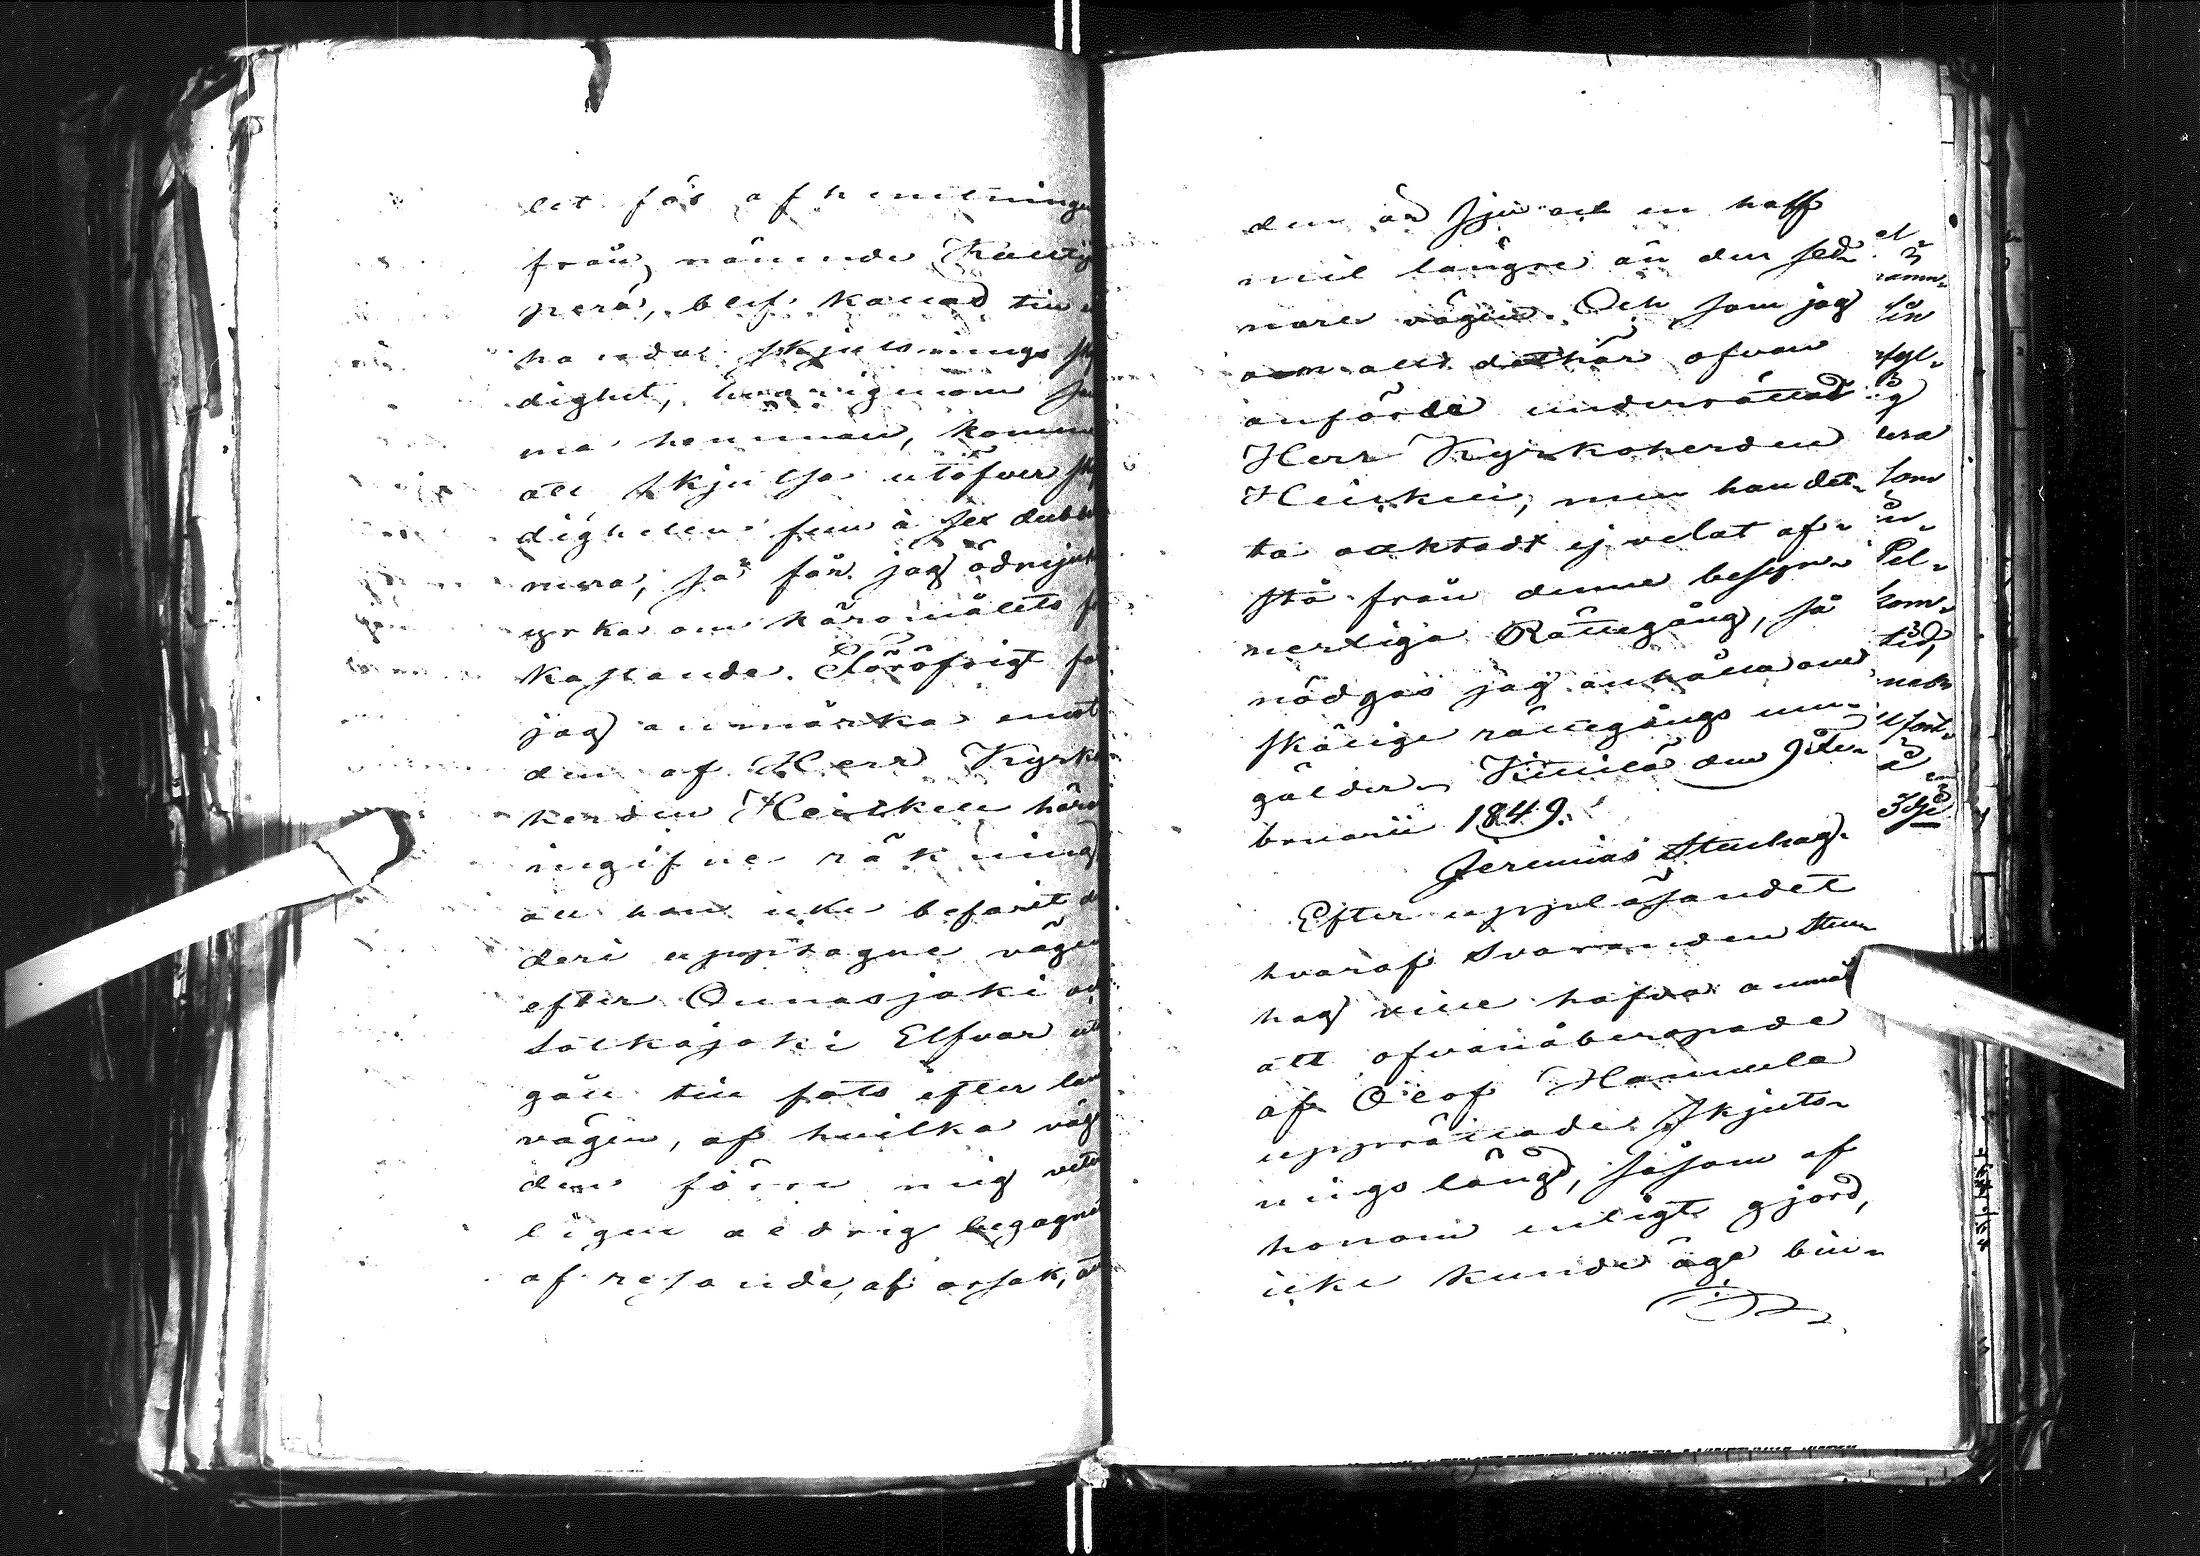 let för afhemtninge
från nämnde
perä, blef kallad till
handa skjutsnings sky
dighet, hvarigenom sam
ma hemman, komme
att skjutsa utöfver sky
digheten fem à sex dubbe
mera, så får jag ödmjuk
yrka om käromålets
kastande. Föröfrigt få
jag anmärka emot
den af Herr Kyrko
herden Heickell häri
ingifne räkning
att han icke befarit d
deri upptagne vägen
efter Ounasjoki och
Elfvar ut
gån till fots efter land
vägen, af hvilka väg
den förre mig veter
ligen aldrig begagna
af resande, af orsak, att
den är sju och en half
mil längre än den sed
nare vägen. Och som jag
om allt dethär ofvan
anförde underrättat
Herr Kyrkoherden
Heickell, men han det-
ta oaktadt ej velat af-
stå från denne besyn-
nerliga Rättegång, så
nödgas jag anhålla om
skälige rättegångs um-
gälder. Kittilä den 9 Fe-
bruarii 1849.
Jeremias Stenhag.
Efter uppläsandet
hvaraf Svaranden Sten-
hag ville hafva anmäl
att ofvanåberopade
af Olof Hannula
upprättade Skjuts-
nings längd, såsom af
honom enligt gjord,
icke kunde äga bin-
som
Pel-
som
tid,